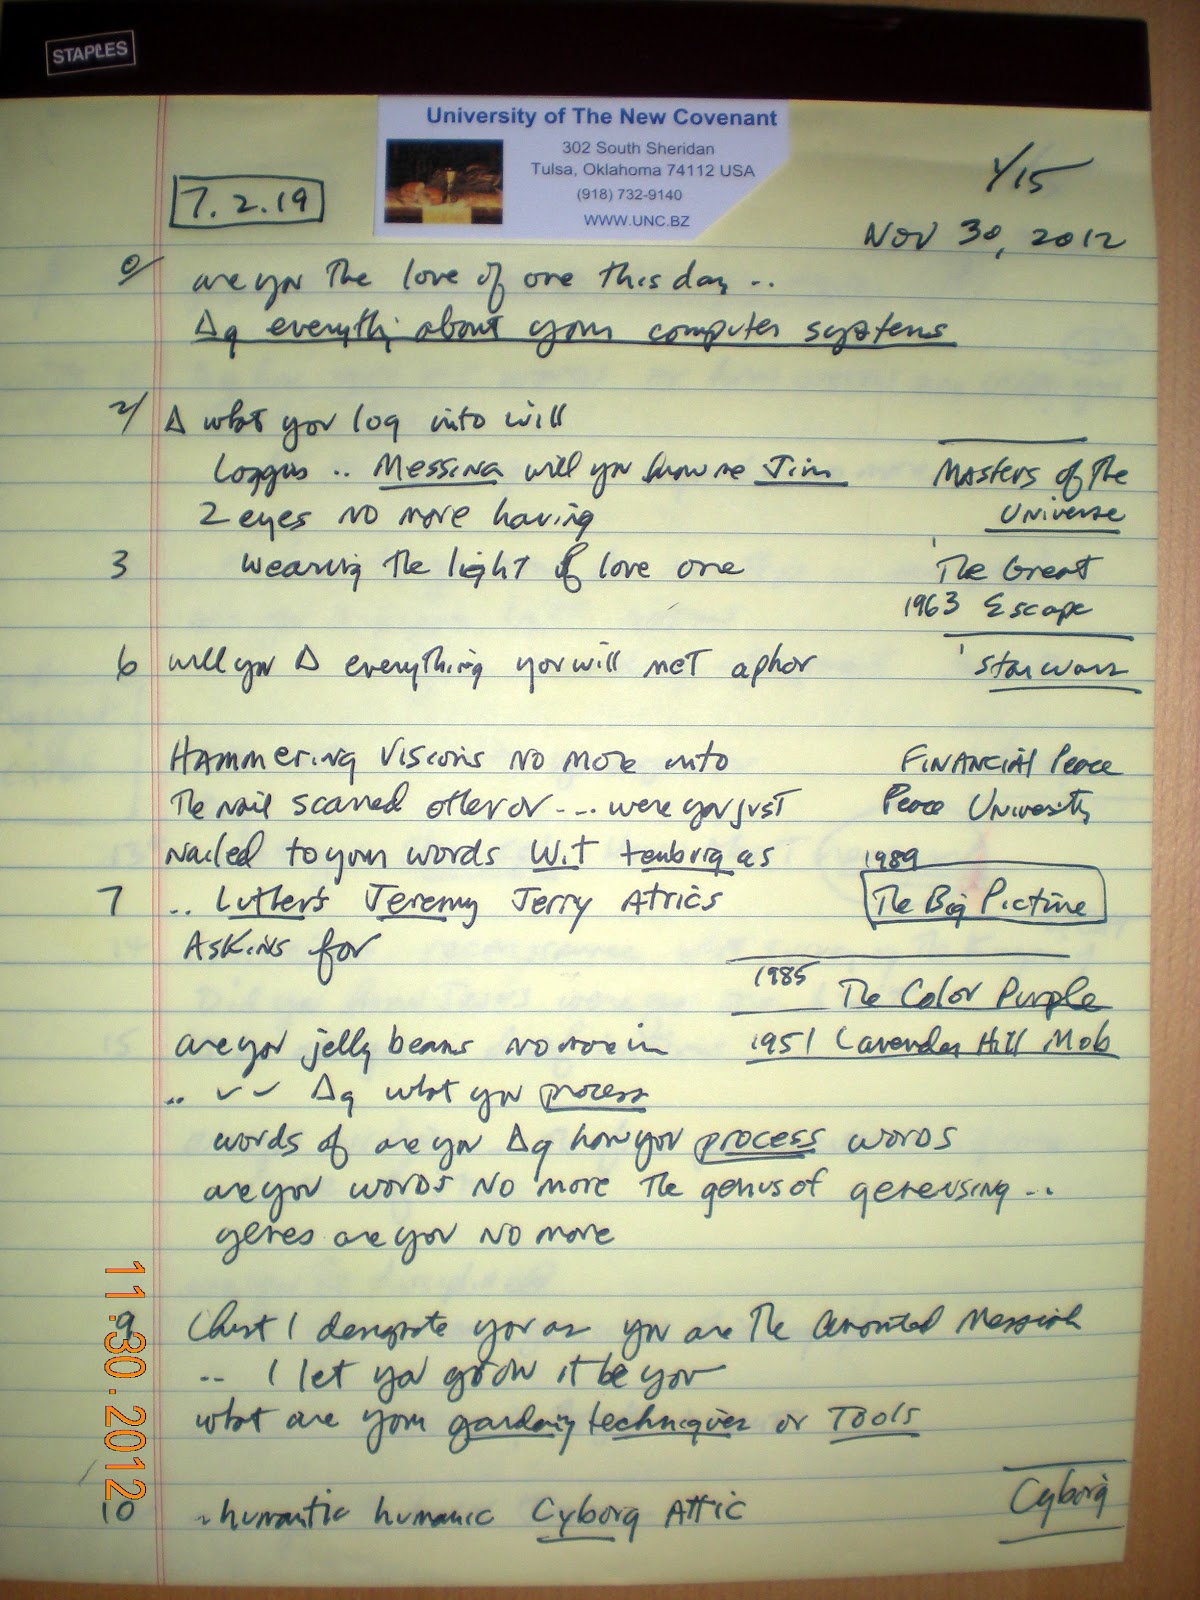 STAPLES
University of The New Covenant
302 South Sheridan
Tulsa, Oklahoma 74112 USA
(918) 732-9140
WWW.UNC.BZ
7.2.19
1/15
Nov 30, 2012
0/ are you The love of one This day ..
Δq everythi about your computer systems
2/ Δ what you log into will
Loggins .. Messina will you know me Jim
Masters of The
2 eyes NO more having
Universe
3 wearing The light of love one
'The Great
1963 Escape
6 will you Δ everything you will meT aphor
'Star wars
Hammering Visions NO More into
Financial Peace
The nail scarred other or .... were you just
Peace University
Nailed to your words Wit as
1989
7 .. Luther's Jeremy Jerry Atrics
The Big Picture
Askins for
1985 The Color Purple
are you jelly beans no more in
1951 Lavender Hill Mob
.. ✓ ✓ Δq what you process
words of are you Δq how you process words
are you words NO more The genus of genersing ..
genes are you NO more
9 Christ I designate you as you are The anointed Messiah
.. I let you grow it be you
what are your gardning techniques or Tools
10 humantic humanic Cyborg Attic
Cyborg
11.30.2012